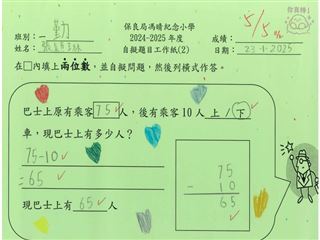 保良局馮晴紀念小學
2024-2025 年度
自擬題目工作紙(2)
班別：一勤
姓名：
成績：5/5分
日期：23-1-2025
在□內填上兩位數，並自擬問題，然後列橫式作答。
巴士上原有乘客 75 人，後有乘客10人 上 / 下
車，現巴士上有多少人？
75-10
=65
75
- 10
65
現巴士上有 65 人
你真棒！